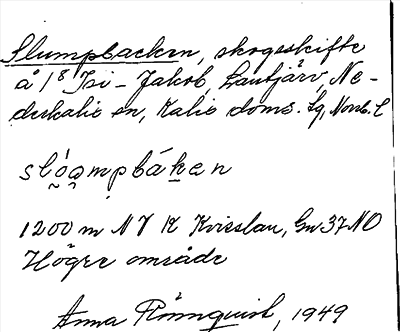 Slumpbacken, skogsskifte
å 1⁸ Isi-Jakob, Lautjärv, Ne-
derkalix sn, Kalix doms. lg, Norrb. l
slóampbáken
1200 m NV K Kvisslan, Gn 37 NO
Högre område
Anna Rönnquist, 1949